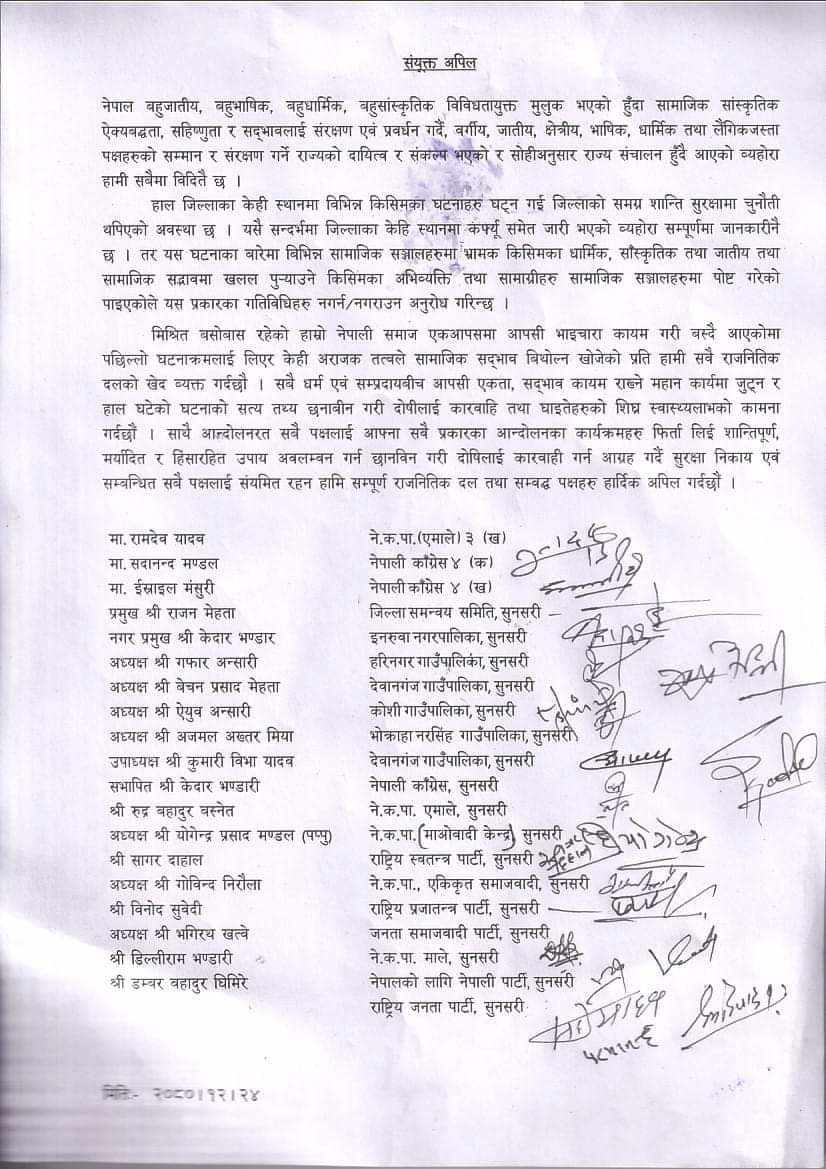 संयूक्त अपिल
नेपाल बहुजातीय, बहुभाषिक, बहुधार्मिक, बहुसांस्कृतिक विविधतायुक्त मुलुक भएको हुँदा सामाजिक सांस्कृतिक
ऐक्यबद्धता, सहिष्णुता र सद्‌भावलाई संरक्षण एवं प्रवर्धन गर्दै, वर्गीय, जातीय, क्षेत्रीय, भाषिक, धार्मिक तथा लैंगिकजस्ता
पक्षहरुको सम्मान र संरक्षण गर्ने राज्यको दायित्व र संकल्प भएको र सोहीअनुसार राज्य संचालन हुँदै आएको व्यहोरा
हामी सबैमा विदितै छ ।
हाल जिल्लाका केही स्थानमा विभिन्न किसिमका घटनाहरु घट्न गई जिल्लाको समग्र शान्ति सुरक्षामा चुनौती
थपिएको अवस्था छ । यसै सन्दर्भमा जिल्लाका केहि स्थानमा कर्फ्यू समेत जारी भएको व्यहोरा सम्पूर्णमा जानकारीनै
छ । तर यस घटनाका बारेमा विभिन्न सामाजिक सञ्जालहरुमा भ्रामक किसिमका धार्मिक, साँस्कृतिक तथा जातीय तथा
सामाजिक सद्भावमा खलल पुऱ्याउने किसिमका अभिव्यक्ति तथा सामाग्रीहरु सामाजिक सञ्जालहरुमा पोष्ट गरेको
पाइएकोले यस प्रकारका गतिविधिहरु नगर्न/नगराउन अनुरोध गरिन्छ ।
मिश्रित बसोबास रहेको हाम्रो नेपाली समाज एकआपसमा आपसी भाइचारा कायम गरी बस्दै आएकोमा
पछिल्लो घटनाक्रमलाई लिएर केही अराजक तत्वले सामाजिक सद्‌भाव बिथोल्न खोजेको प्रति हामी सवै राजनितिक
दलको खेद व्यक्त गर्दछौं । सबै धर्म एवं सम्प्रदायबीच आपसी एकता, सद्‌भाव कायम राख्ने महान कार्यमा जुट्न र
हाल घटेको घटनाको सत्य तथ्य छनावीन गरी दोषीलाई कारवाहि तथा घाइतेहरुको शिघ्र स्वास्थ्यलाभको कामना
गर्दछौं । साथै आन्दोलनरत सबै पक्षलाई आफ्ना सबै प्रकारका आन्दोलनका कार्यक्रमहरु फिर्ता लिई शान्तिपूर्ण,
मर्यादित र हिंसारहित उपाय अवलम्वन गर्न छानविन गरी दोषिलाई कारवाही गर्न आग्रह गर्दै सुरक्षा निकाय एवं
सम्बन्धित सवै पक्षलाई संयमित रहन हामि सम्पूर्ण राजनितिक दल तथा सम्बद्ध पक्षहरु हार्दिक अपिल गर्दछौं ।
मा. रामदेव यादव ने.क.पा.(एमाले) ३ (ख)
मा. सदानन्द मण्डल नेपाली काँग्रेस ४ (क)
मा. ईस्राइल मंसुरी नेपाली काँग्रेस ४ (ख)
प्रमुख श्री राजन मेहता जिल्ला समन्वय समिति, सुनसरी
नगर प्रमुख श्री केदार भण्डार इनरुवा नगरपालिका, सुनसरी
अध्यक्ष श्री गफार अन्सारी हरिनगर गाउँपालिका, सुनसरी
अध्यक्ष श्री बेचन प्रसाद मेहता देवानगंज गाउँपालिका, सुनसरी
अध्यक्ष श्री ऐयुव अन्सारी कोशी गाउँपालिका, सुनसरी
अध्यक्ष श्री अजमल अख्तर मिया भोक्राहा नरसिंह गाउँपालिका, सुनसरी
उपाध्यक्ष श्री कुमारी विभा यादव देवानगंज गाउँपालिका, सुनसरी
सभापित श्री केदार भण्डारी नेपाली काँग्रेस, सुनसरी
श्री रुद्र बहादुर बस्नेत ने.क.पा. एमाले, सुनसरी
अध्यक्ष श्री योगेन्द्र प्रसाद मण्डल (पप्पु) ने.क.पा.(माओवादी केन्द्र) सुनसरी
श्री सागर दाहाल राष्ट्रिय स्वतन्त्र पार्टी, सुनसरी
अध्यक्ष श्री गोविन्द निरौला ने.क.पा., एकिकृत समाजवादी, सुनसरी
श्री विनोद सुवेदी राष्ट्रिय प्रजातन्त्र पार्टी, सुनसरी
अध्यक्ष श्री भगिरथ खत्वे जनता समाजवादी पार्टी, सुनसरी
श्री डिल्लीराम भण्डारी ने.क.पा. माले, सुनसरी
श्री डम्वर बहादुर घिमिरे नेपालको लागि नेपाली पार्टी, सुनसरी
राष्ट्रिय जनता पार्टी, सुनसरी
मितिः- २०८०।१२।२४